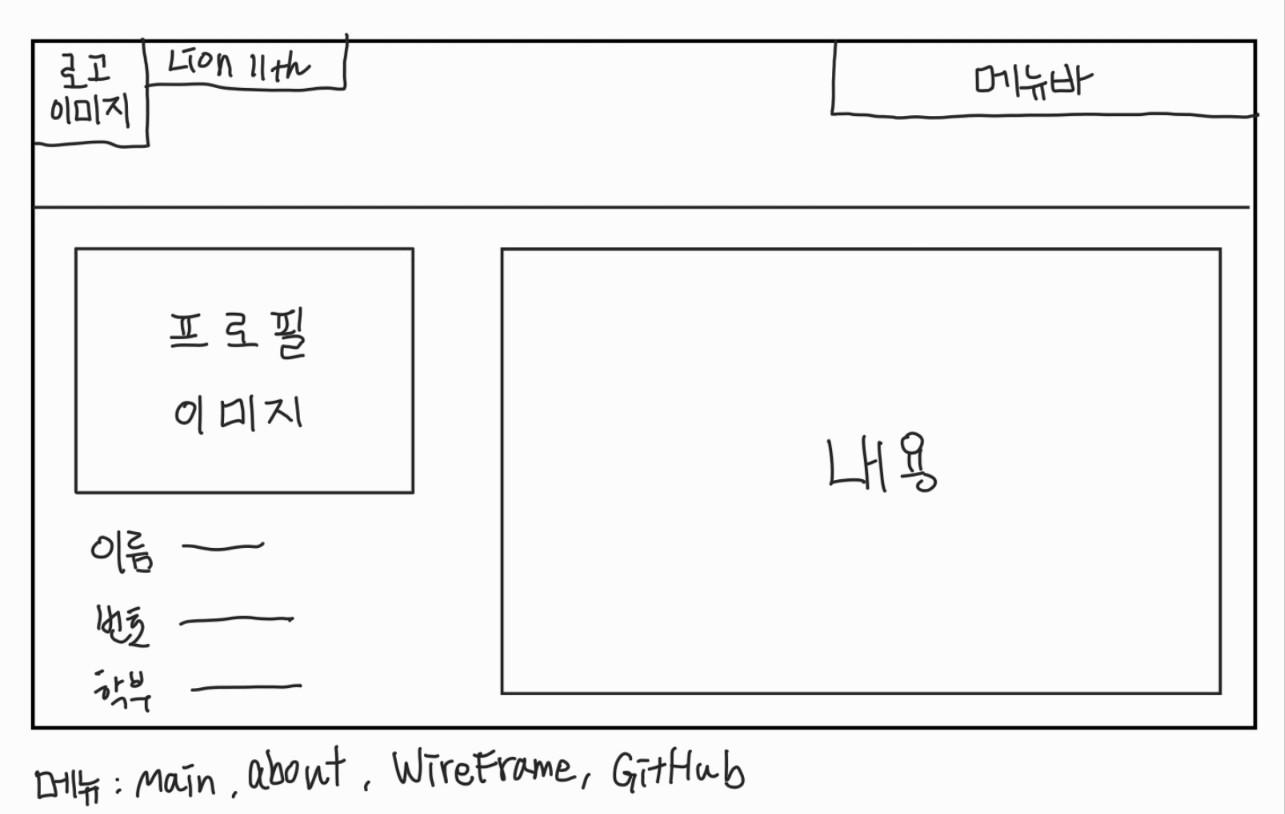 로고
이미지
Lion 11th
메뉴바
프로필
이미지
이름
번호
학부
내용
메뉴 : Main, about, WireFrame, GitHub